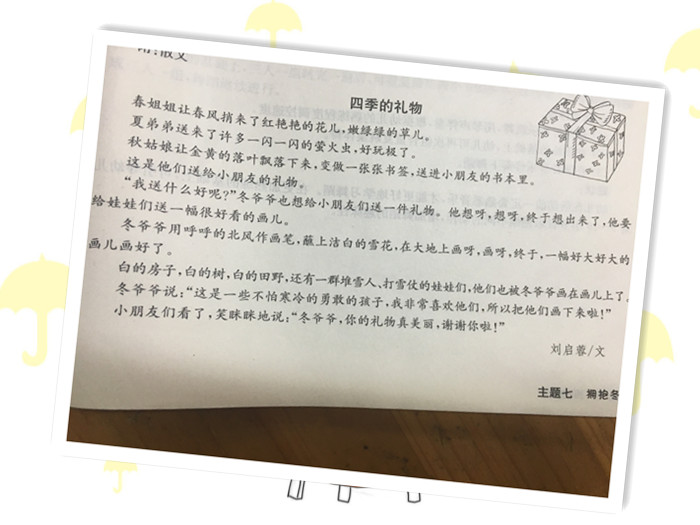 附:散文
四季的礼物
春姐姐让春风捎来了红艳艳的花儿,嫩绿绿的草儿。
夏弟弟送来了许多一闪一闪的萤火虫,好玩极了。
秋姑娘让金黄的落叶飘落下来,变做一张张书签,送进小朋友的书本里。
这是他们送给小朋友的礼物。
“我送什么好呢?”冬爷爷也想给小朋友们送一件礼物。他想呀,想呀,终于想出来了,他要
给娃娃们送一幅很好看的画儿。
冬爷爷用呼呼的北风作画笔,蘸上洁白的雪花,在大地上画呀,画呀,终于,一幅好大好大的
画儿画好了。
白的房子,白的树,白的田野,还有一群堆雪人、打雪仗的娃娃们,他们也被冬爷爷画在画儿上了。
冬爷爷说:“这是一些不怕寒冷的勇敢的孩子,我非常喜欢他们,所以把他们画下来啦!”
小朋友们看了,笑眯眯地说:“冬爷爷,你的礼物真美丽,谢谢你啦!”
刘启蓉/文
主题七 拥抱冬